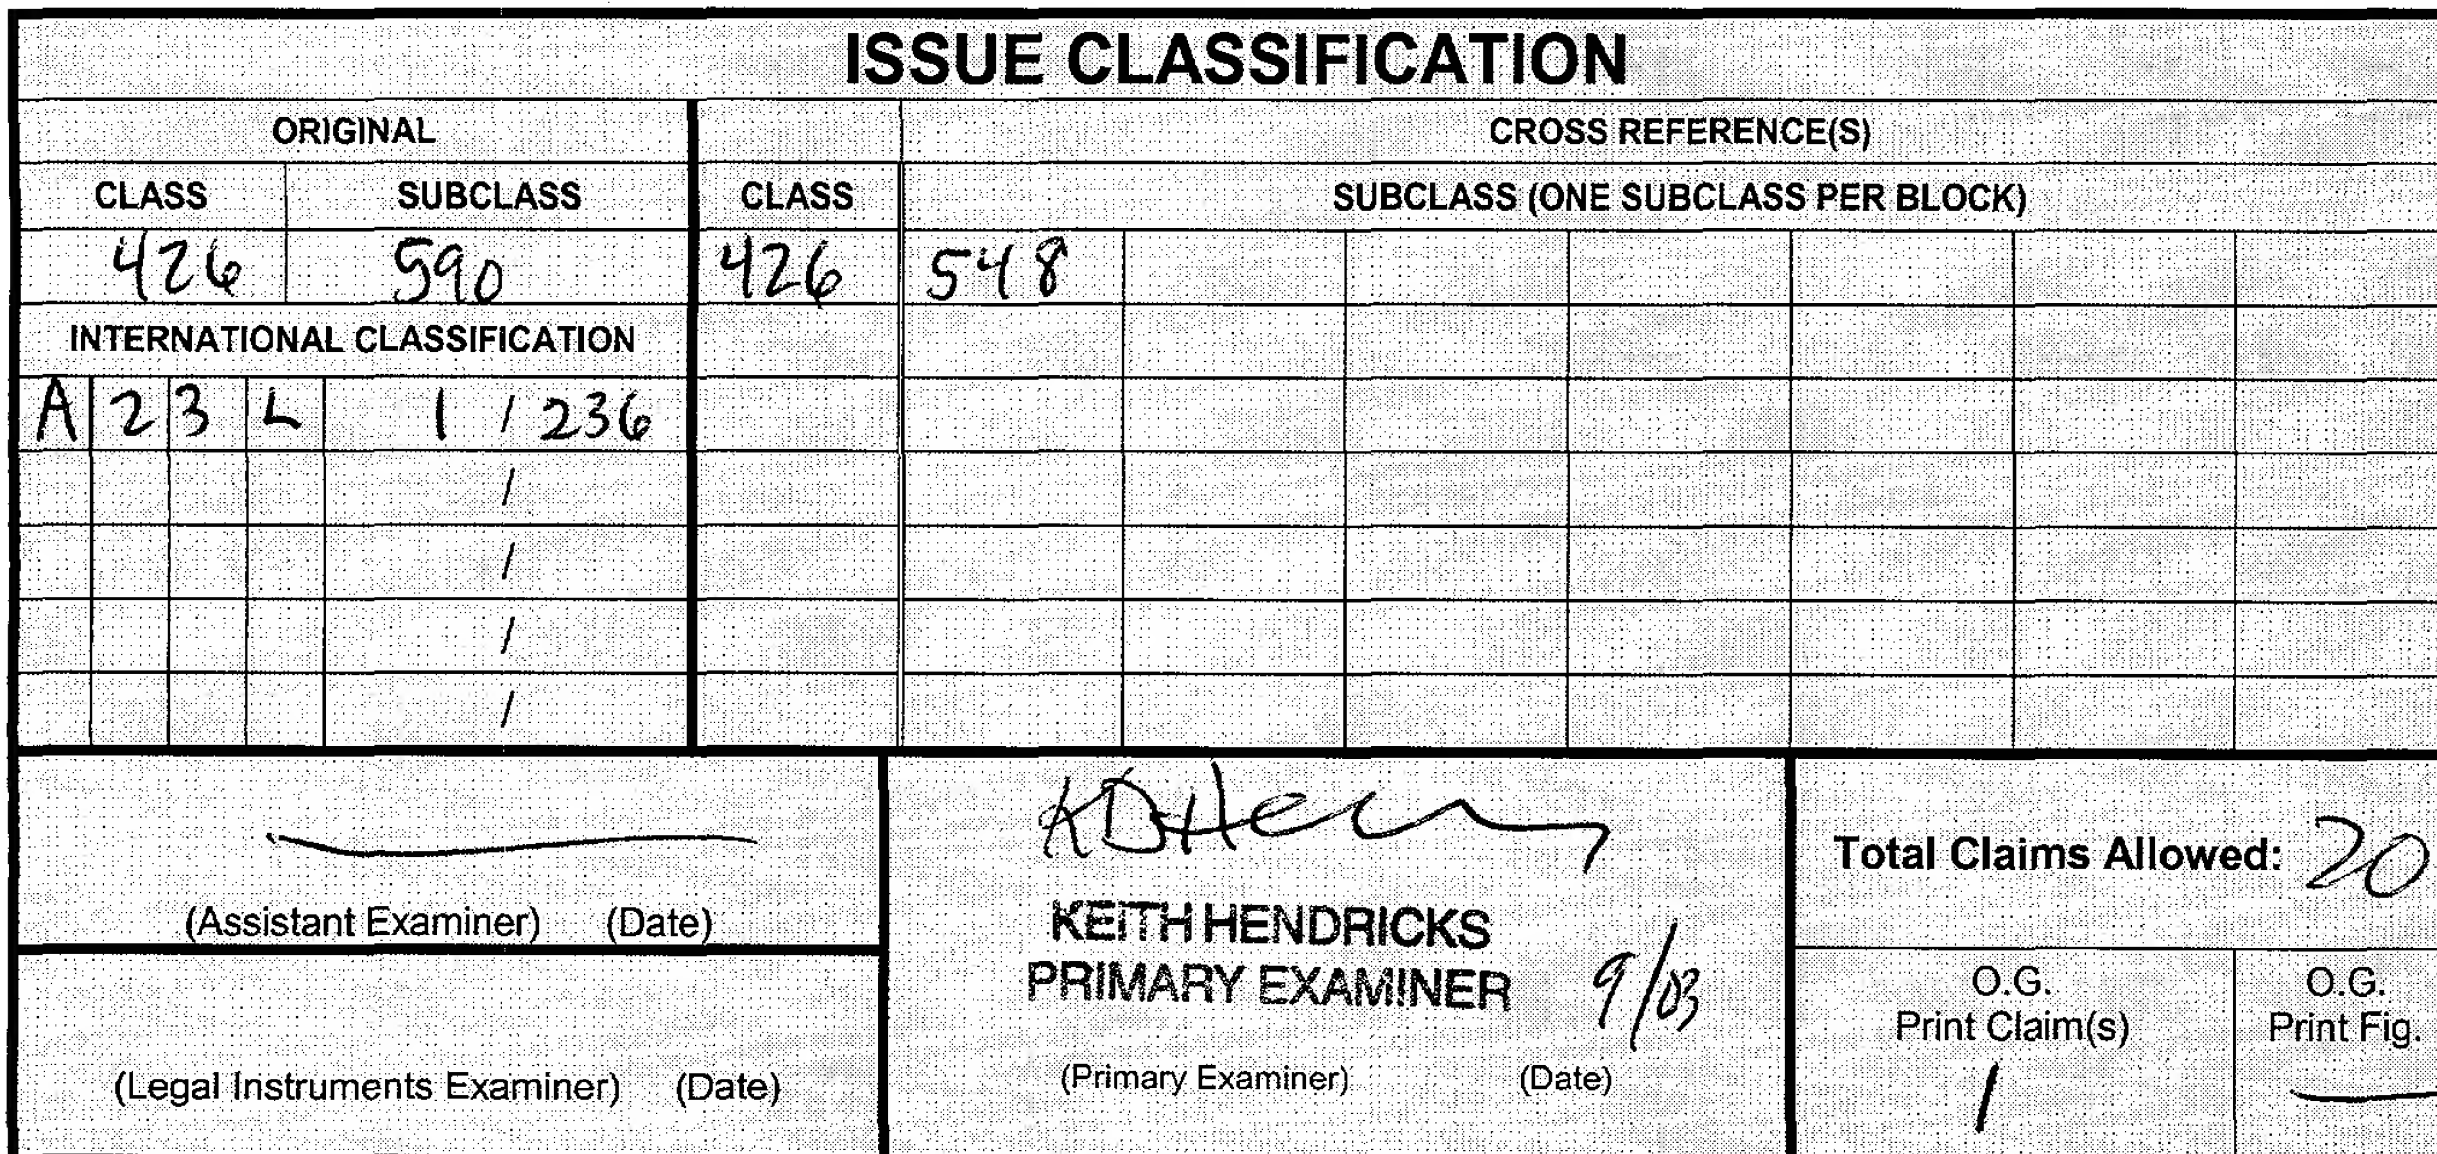 ISSUE CLASSIFICATION
ORIGINAL
CROSS REFERENCE(S)
CLASS SUBCLASS CLASS SUBCLASS (ONE SUBCLASS PER BLOCK)
426 590 426 548
INTERNATIONAL CLASSIFICATION
A 23 L 1 / 236
/
/
/
/
(Assistant Examiner) (Date)
(Legal Instruments Examiner) (Date)
KEITH HENDRICKS
PRIMARY EXAMINER 9/03
(Primary Examiner) (Date)
Total Claims Allowed: 20
O.G.
Print Claim(s)
1
O.G.
Print Fig.